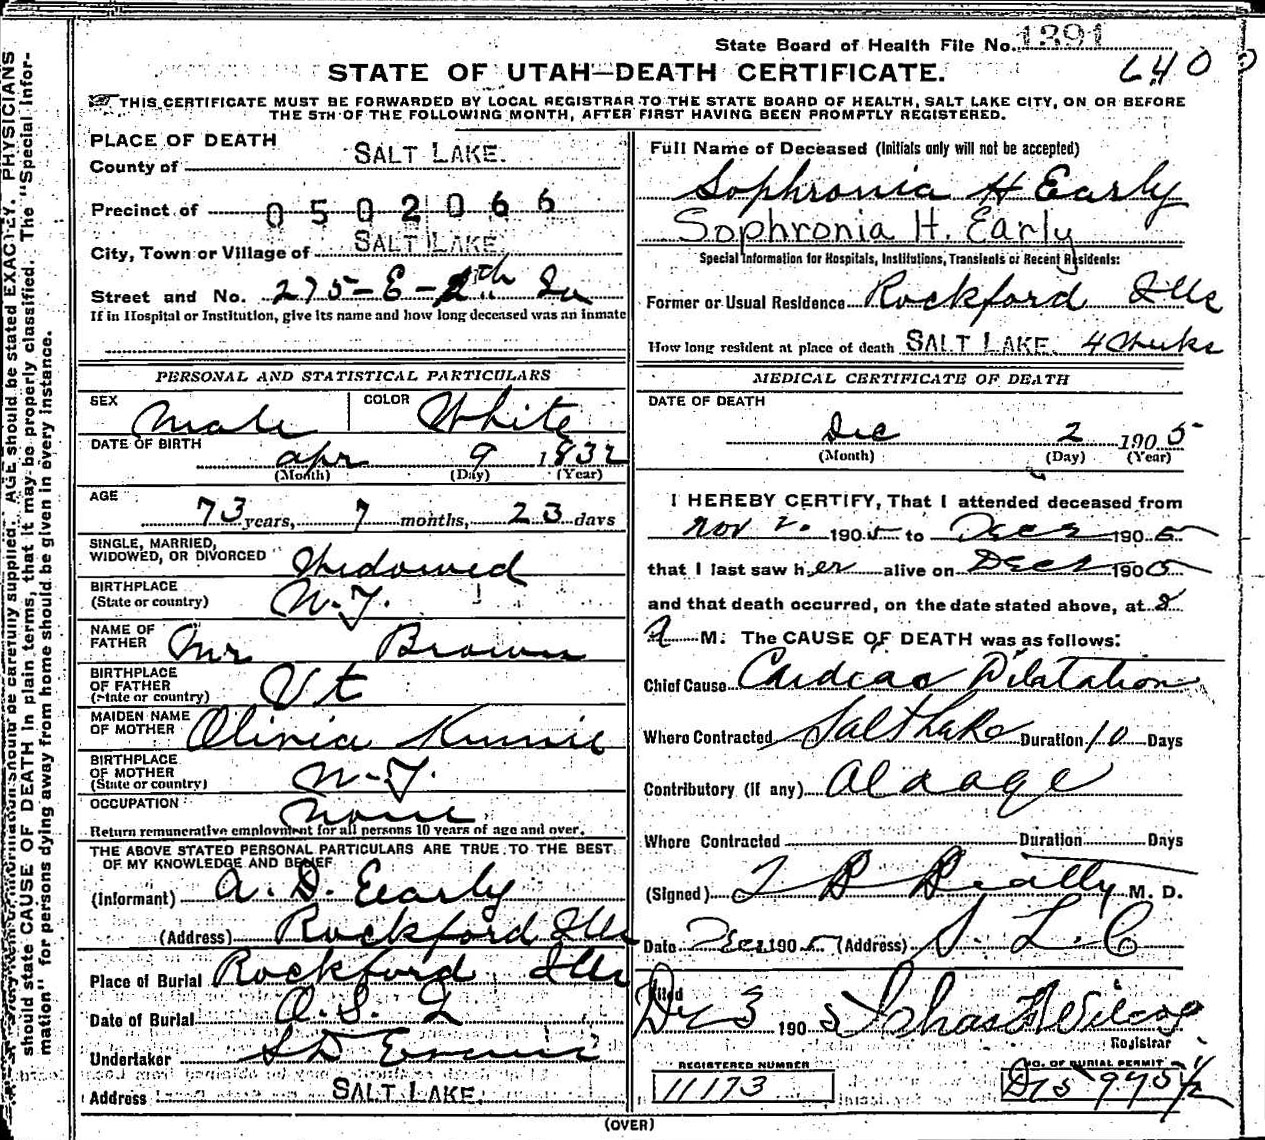 State Board of Health File No. 1391
STATE OF UTAH—DEATH CERTIFICATE.
6400
THIS CERTIFICATE MUST BE FORWARDED BY LOCAL REGISTRAR TO THE STATE BOARD OF HEALTH, SALT LAKE CITY, ON OR BEFORE
THE 5TH OF THE FOLLOWING MONTH, AFTER FIRST HAVING BEEN PROMPTLY REGISTERED.
PLACE OF DEATH
County of SALT LAKE.
Precinct of 0502066
City, Town or Village of SALT LAKE
Street and No. 275-E-2th So
If in Hospital or Institution, give its name and how long deceased was an inmate
PERSONAL AND STATISTICAL PARTICULARS
SEX Male COLOR White
DATE OF BIRTH
Apr 9 1832
(Month) (Day) (Year)
AGE
73 years, 7 months, 23 days
SINGLE, MARRIED,
WIDOWED, OR DIVORCED Widowed
BIRTHPLACE
(State or country) N-Y.
NAME OF
FATHER Mr Brown
BIRTHPLACE
OF FATHER
(State or country) Vt
MAIDEN NAME
OF MOTHER Olivia
BIRTHPLACE
OF MOTHER
(State or country) N-Y.
OCCUPATION None
Return remunerative employment for all persons 10 years of age and over.
THE ABOVE STATED PERSONAL PARTICULARS ARE TRUE TO THE BEST
OF MY KNOWLEDGE AND BELIEF
(Informant) A. D. Early
(Address) Rockford Ills
Place of Burial Rockford Ills
Date of Burial
Undertaker S D Evans
Address SALT LAKE.
Full Name of Deceased (Initials only will not be accepted)
Sophronia H Early
Sophronia H. Early
Special Information for Hospitals, Institutions, Transients or Recent Residents:
Former or Usual Residence Rockford Ills
How long resident at place of death SALT LAKE. 4 Weeks
MEDICAL CERTIFICATE OF DEATH
DATE OF DEATH
Dec 2 1905
(Month) (Day) (Year)
I HEREBY CERTIFY, That I attended deceased from
Nov 2. 1905 to Dec 2 1905
that I last saw her alive on Dec 2 1905
and that death occurred, on the date stated above, at
M. The CAUSE OF DEATH was as follows:
Chief Cause Cardiac Dilatation
Where Contracted Salt Lake Duration 10 Days
Contributory (if any) Old age
Where Contracted Duration Days
(Signed) T B Beatty M. D.
Date Dec 2 1905 (Address) S. L. C
Filed
Dec 3 1905 Wilcox
Registrar
REGISTERED NUMBER
11173
NO. OF BURIAL PERMIT
(OVER)
AGE should be stated EXACTLY. PHYSICIANS
should state CAUSE OF DEATH in plain terms, that it may be properly classified. The "Special Infor-
mation" for persons dying away from home should be given in every instance.